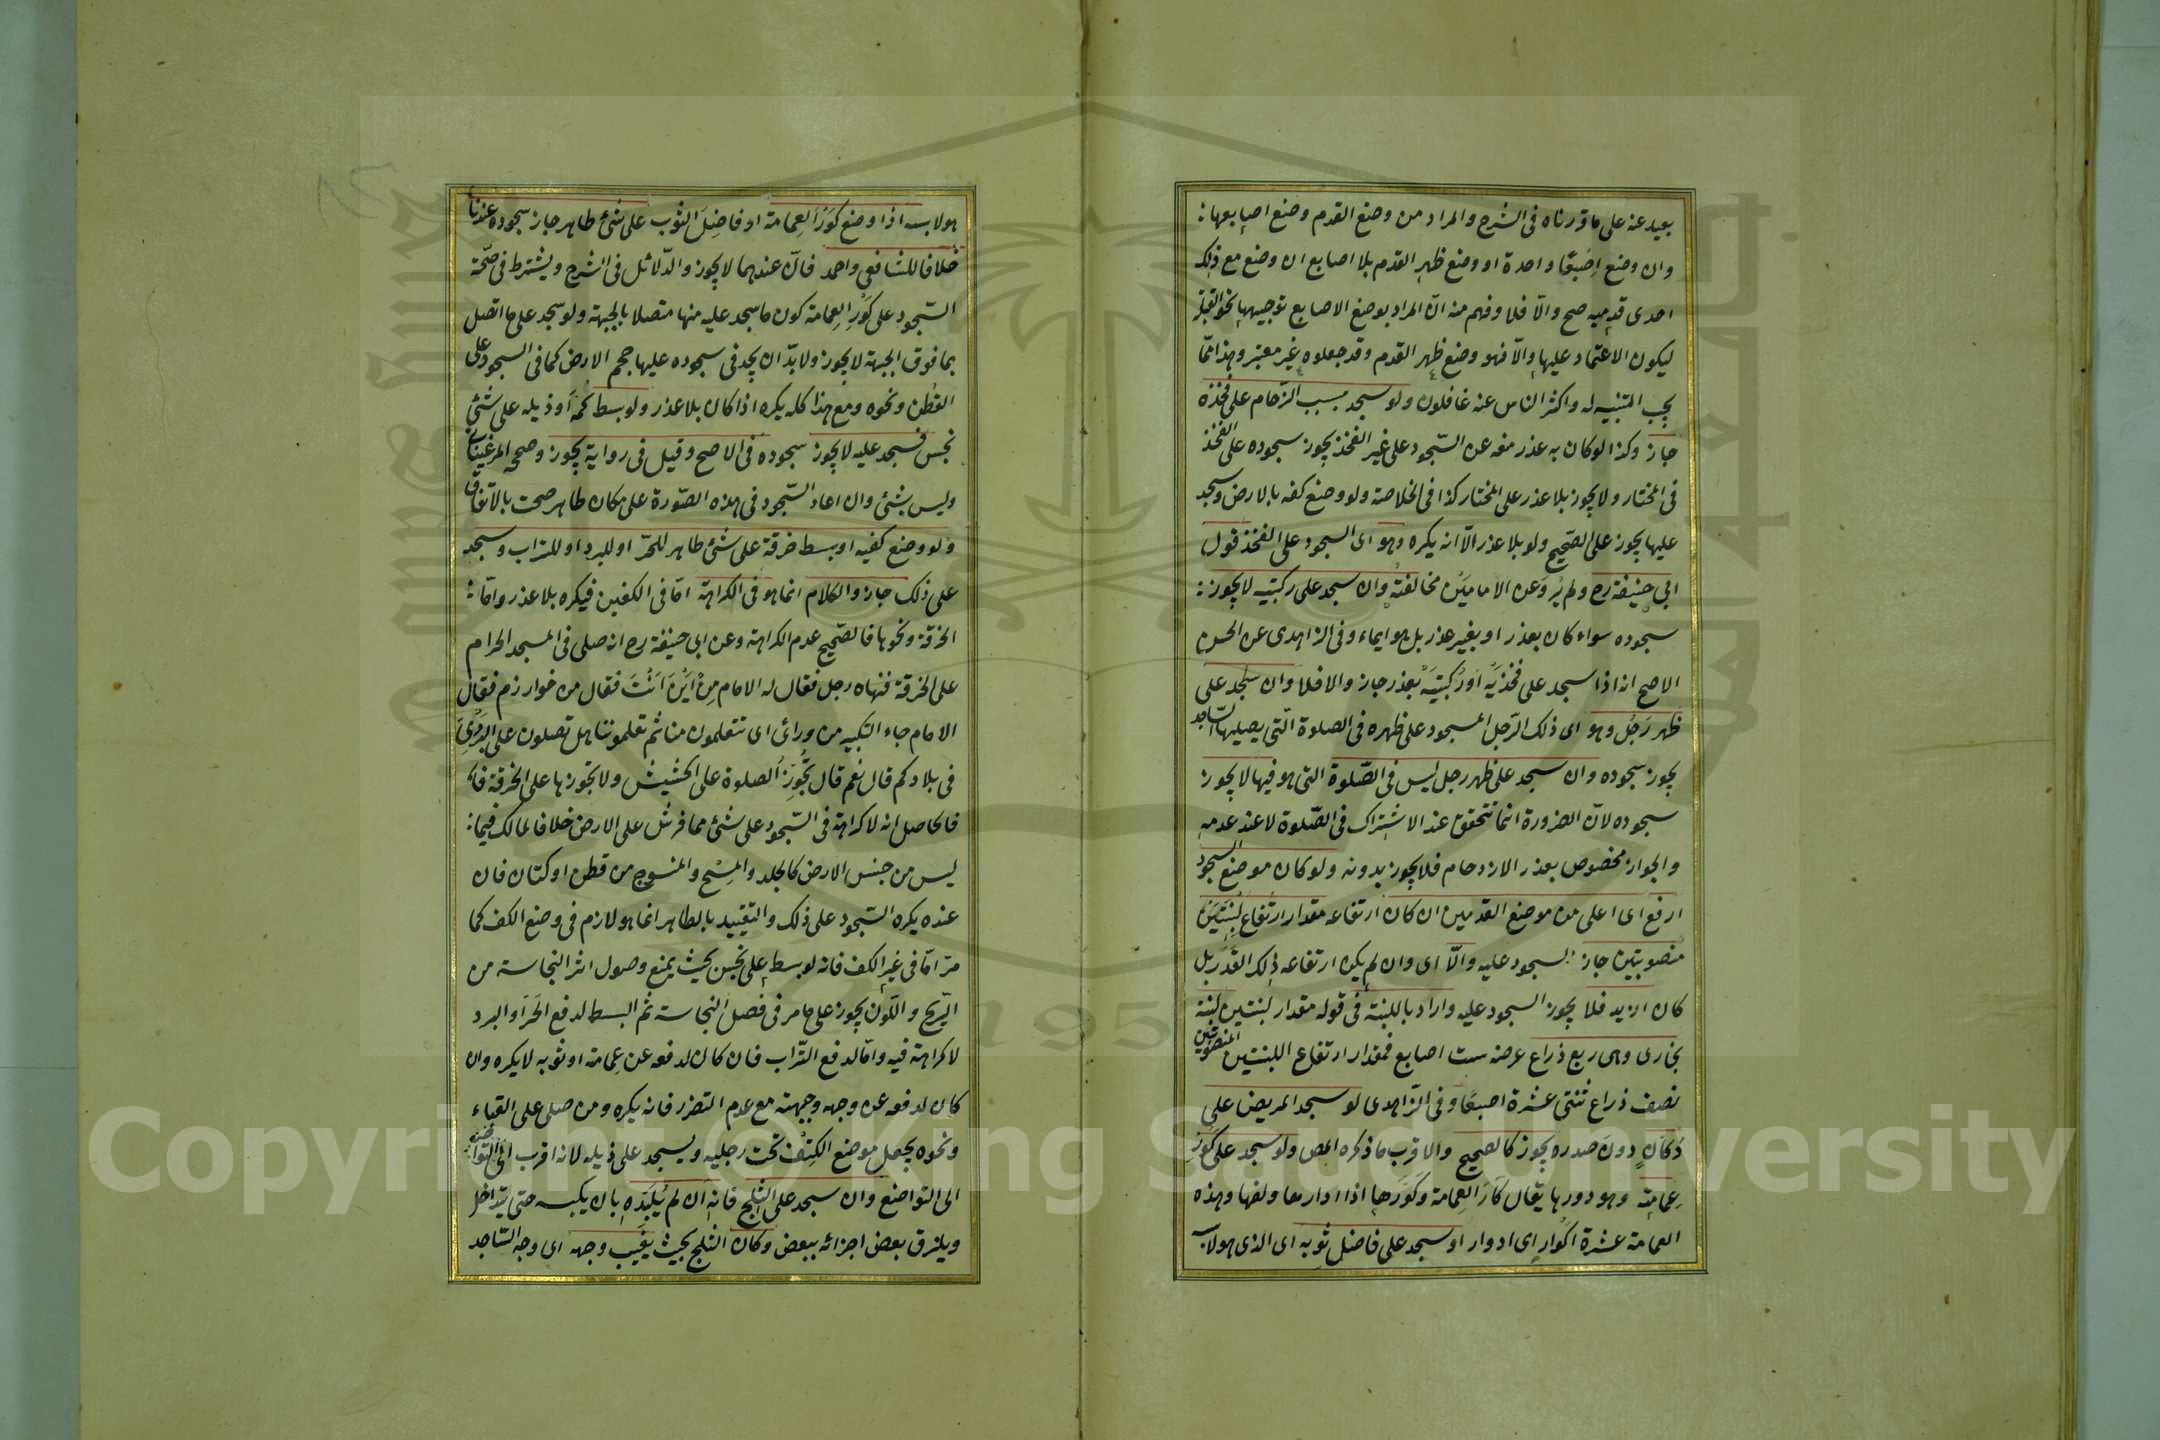 بعيد عنه على ما قررناه فى الشرح والمراد من وضع القدم وضع اصابعها :
وان وضع اصبعًا واحدة او وضع ظهر القدم بلا اصابع ان وضع مع ذلك
احدى قدميه صح والّا فلا وفهم منه انّ المراد بوضع الاصابع توجيهها نحو القبلة
ليكون الاعتماد عليها والّا فهو وضع ظهر القدم وقد جعلوه غير معتبر وهذا ممّا
يجب التنبيه له واكثر الناس عنه غافلون ولو سجد بسبب الزّحام على فخذه
جاز وكذا لو كان به عذر منعه عن السّجود على غير الفخذ يجوز سجوده على الفخذ
فى المختار ولا يجوز بلا عذر على المختار كذا فى الخلاصة ولو وضع كفه بالارض وسجد
عليها يجوز على الصّحيح ولو بلا عذر الّا انه يكره وهو اى السجود على الفخذ قول
ابى حنيفة رح ولم يُروَ عن الامامَيْن مخالفته وان سجد على ركبتيه لا يجوز :
سجوده سواء كان بعذر او بغير عذر بل هو ايماء وفى الزاهدى عن الحسن
الاصح انه اذا سجد على فخذَيْه اَوْ رُكبتَيْه بعذر جاز والا فلا وان سجد على
ظهر رَجُل وهو اى ذلك الرّجل المسجود على ظهره فى الصلوة الّتى يصليها السّاجد
يجوز سجوده وان سجد على ظهر رجل ليس فى الصّلوة التى هو فيها لا يجوز
سجوده لانّ الضرورة انّما تتحقق عند الاشتراك فى الصّلوة لا عند عدمه
والجواز مخصوص بعذر الازدحام فلا يجوز بدونه ولو كان موضع السجود
ارفع اى اعلى من موضع القدمين ان كان ارتفاعه مقدار ارتفاع لَبِنَتَيْن
مَنصوبتين جاز السجود عليه والّا اى وان لم يكن ارتفاعه ذلك القدر بل
كان ازيد فلا يجوز السجود عليه واراد باللبنة فى قوله مقدار لبنتين لبنة
بخارى وهى ربع ذراع عرضه ست اصابع فمقدار ارتفاع اللبنتين المنصوبتين
نصف ذراع ثنتى عشرة اصبعًا وفى الزّاهدى لو سجد المريض على
دُكّانٍ دون صدره يجوز كالصحيح والاقرب ما ذكره المص ولو سجد على كَوْرِ
عِمامته وهو دورها يقال كَارَ العِمامة وكَوَّرَها اذا ادارها ولفها وهذه
العمامة عشرة اكْوار اى ادوار او سجد على فاضل ثوبه اى الذى هو لابسه
هو لابسه اذا وضع كَوْرَ العِمامة او فاضِلَ الثوب على شئ طاهر جاز سجوده عندنا
خلافا للشافعى واحمد فانّ عندهما لا يجوز والدّلائل فى الشرح ويشترط فى صحّة
السّجود على كَوْرِ العِمامة كون ما سجد عليه منها متصلا بالجبهة ولو سجد على ما اتّصل
بما فوق الجبهة لا يجوز ولا بدّ ان يجد فى سجوده عليها حجم الارض كما فى السجود على
القُطن ونحوه ومع هذا كله يكره اذا كان بلا عذر ولو بسط كُمّه اَو ذيله على شئ
نجس فسجد عليه لا يجوز سجوده فى الاصح وقيل فى رواية يجوز وصححه المرغينانى
وليس بشئ وان اعاد السّجود فى هذه الصّورة على مكان طاهر صحت بالاتفاق
ولو وضع كفيه او بسط خرقة على شئ طاهر للحرّ او للبرد او للتراب وسجد
على ذلك جاز والكلام انما هو فى الكراهة امّا فى الكفين فيكره بلا عذر وامّا :
الخرقة ونحوها فالصّحيح عدم الكراهة وعن ابى حنيفة رح انه صلى فى المسجد الحرام
على الخرقة فنهاه رجل فقال له الامام مِنْ اَيْنَ اَنْتَ فقال من خوارزم فقال
الامام جاء التكبير من ورائى اى تتعلمون منا ثم تعلموننا هل تصلون على البَرْدِىّ
فى بلادكم قال نعم قال تُجَوِّزُ الصلوة على الحشيش ولا تجوزها على الخرقة فا
فالحاصل انه لا كراهة فى السّجود على شئ مما فرش على الارض خلافا لمالك فيما :
ليس من جنس الارض كالجلد والمِسْح والمنسوج من قطن او كتّان فان
عنده يكره السّجود على ذلك والتقييد بالطاهر انما هو لازم فى وضع الكف كما
مرّ امّا فى غير الكف فانه لو بسط على نجس بحيث يمنع وصول اثر النجاسة من
الرّيح واللّون يجوز على ما مر فى فصل النجاسة ثم البسط لدفع الحَرّ او البرد
لا كراهة فيه وامّا لدفع التّراب فان كان لدفعه عن عِمامته او ثوبه لا يكره وان
كان لدفعه عن وجهه وجبهته مع عدم التضرر فانه يكره ومن صلى على القباء
ونحوه يجعل موضع الكتف تحت رجليه ويسجد على ذيله لانه اقرب الى التواضع
الى التواضع وان سجد على الثلج فانه ان لم يُلَبِّدْه بان يكبسه حتى يتداخل
ويلزق بعض اجزائه ببعض وكان الثلج بحيث يغيب وجهه اى وجه السّاجد
Copyright © King Saud University
1957